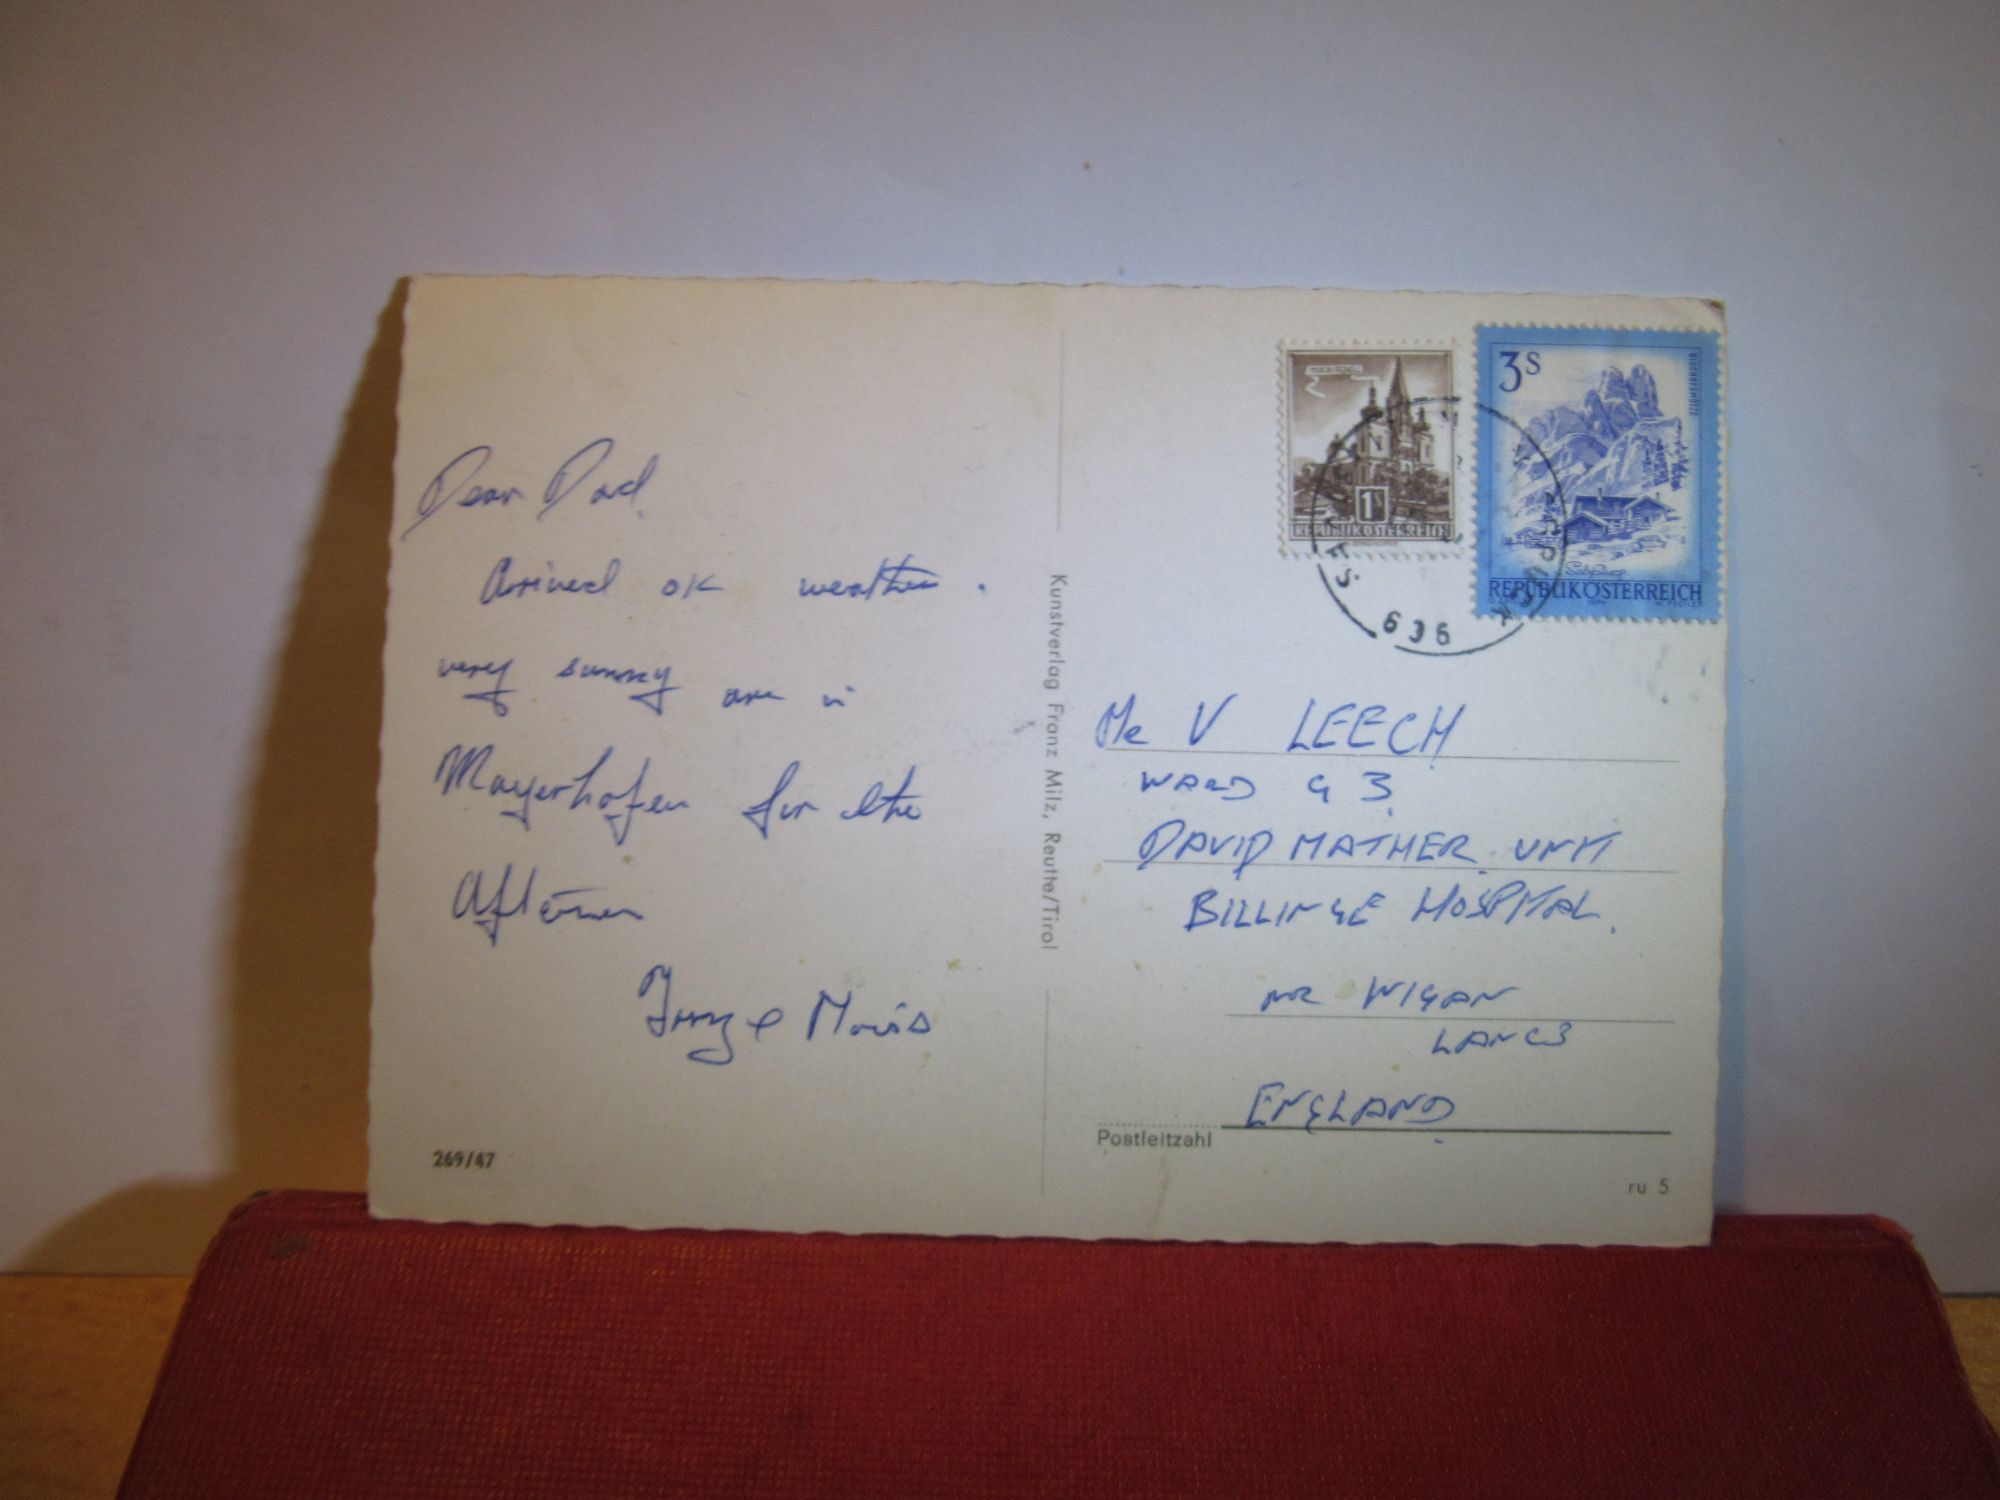 Dear Dad.
Arrived ok weather.
very sunny are in
Mayerhofen for the
Afternoon
269/47
Kunstverlag Franz Milz, Reutte/Tirol
1S
REPUBLIK ÖSTERREICH
3S
BISCHOFSMÜTZE
Salzburg
REPUBLIK ÖSTERREICH
636
Mr V LEECH
WARD G 3
DAVID MATHER UNIT
BILLINGE HOSPITAL.
NR WIGAN
LANCS
ENGLAND
Postleitzahl
ru 5